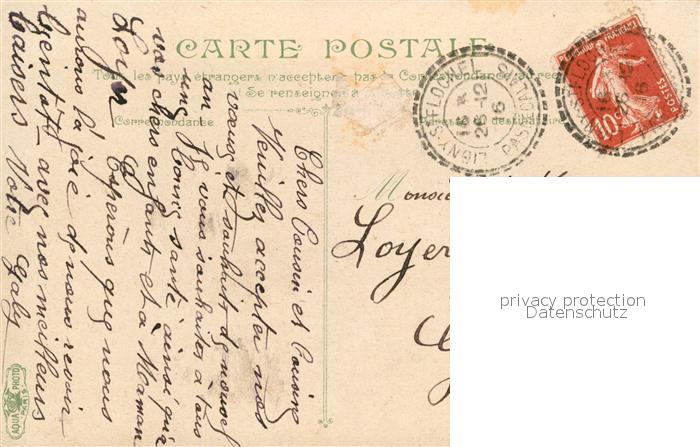 CARTE POSTALE
Tous les pays étrangers n'acceptent pas la Correspondance au recto
Se renseigner à la Poste
Correspondance
destinataire
LIGNY-ST-FLOCHEL
PAS DE CALAIS
15 *
26-12
POSTES
10c
Monsieur
Loyer
Chers Cousin et Cousine
Veuillez accepter nos
vœux et souhaits de nouvel
an Je vous souhaites à tous
une bonne santé ainsi qu'à
vos chers enfants et a Maman
Loyer Espérons que nous
aurons la joie de nous revoir
bientôt avec nos meilleurs
baisers Votre Gaby
AQUA PHOTO
privacy protection
Datenschutz